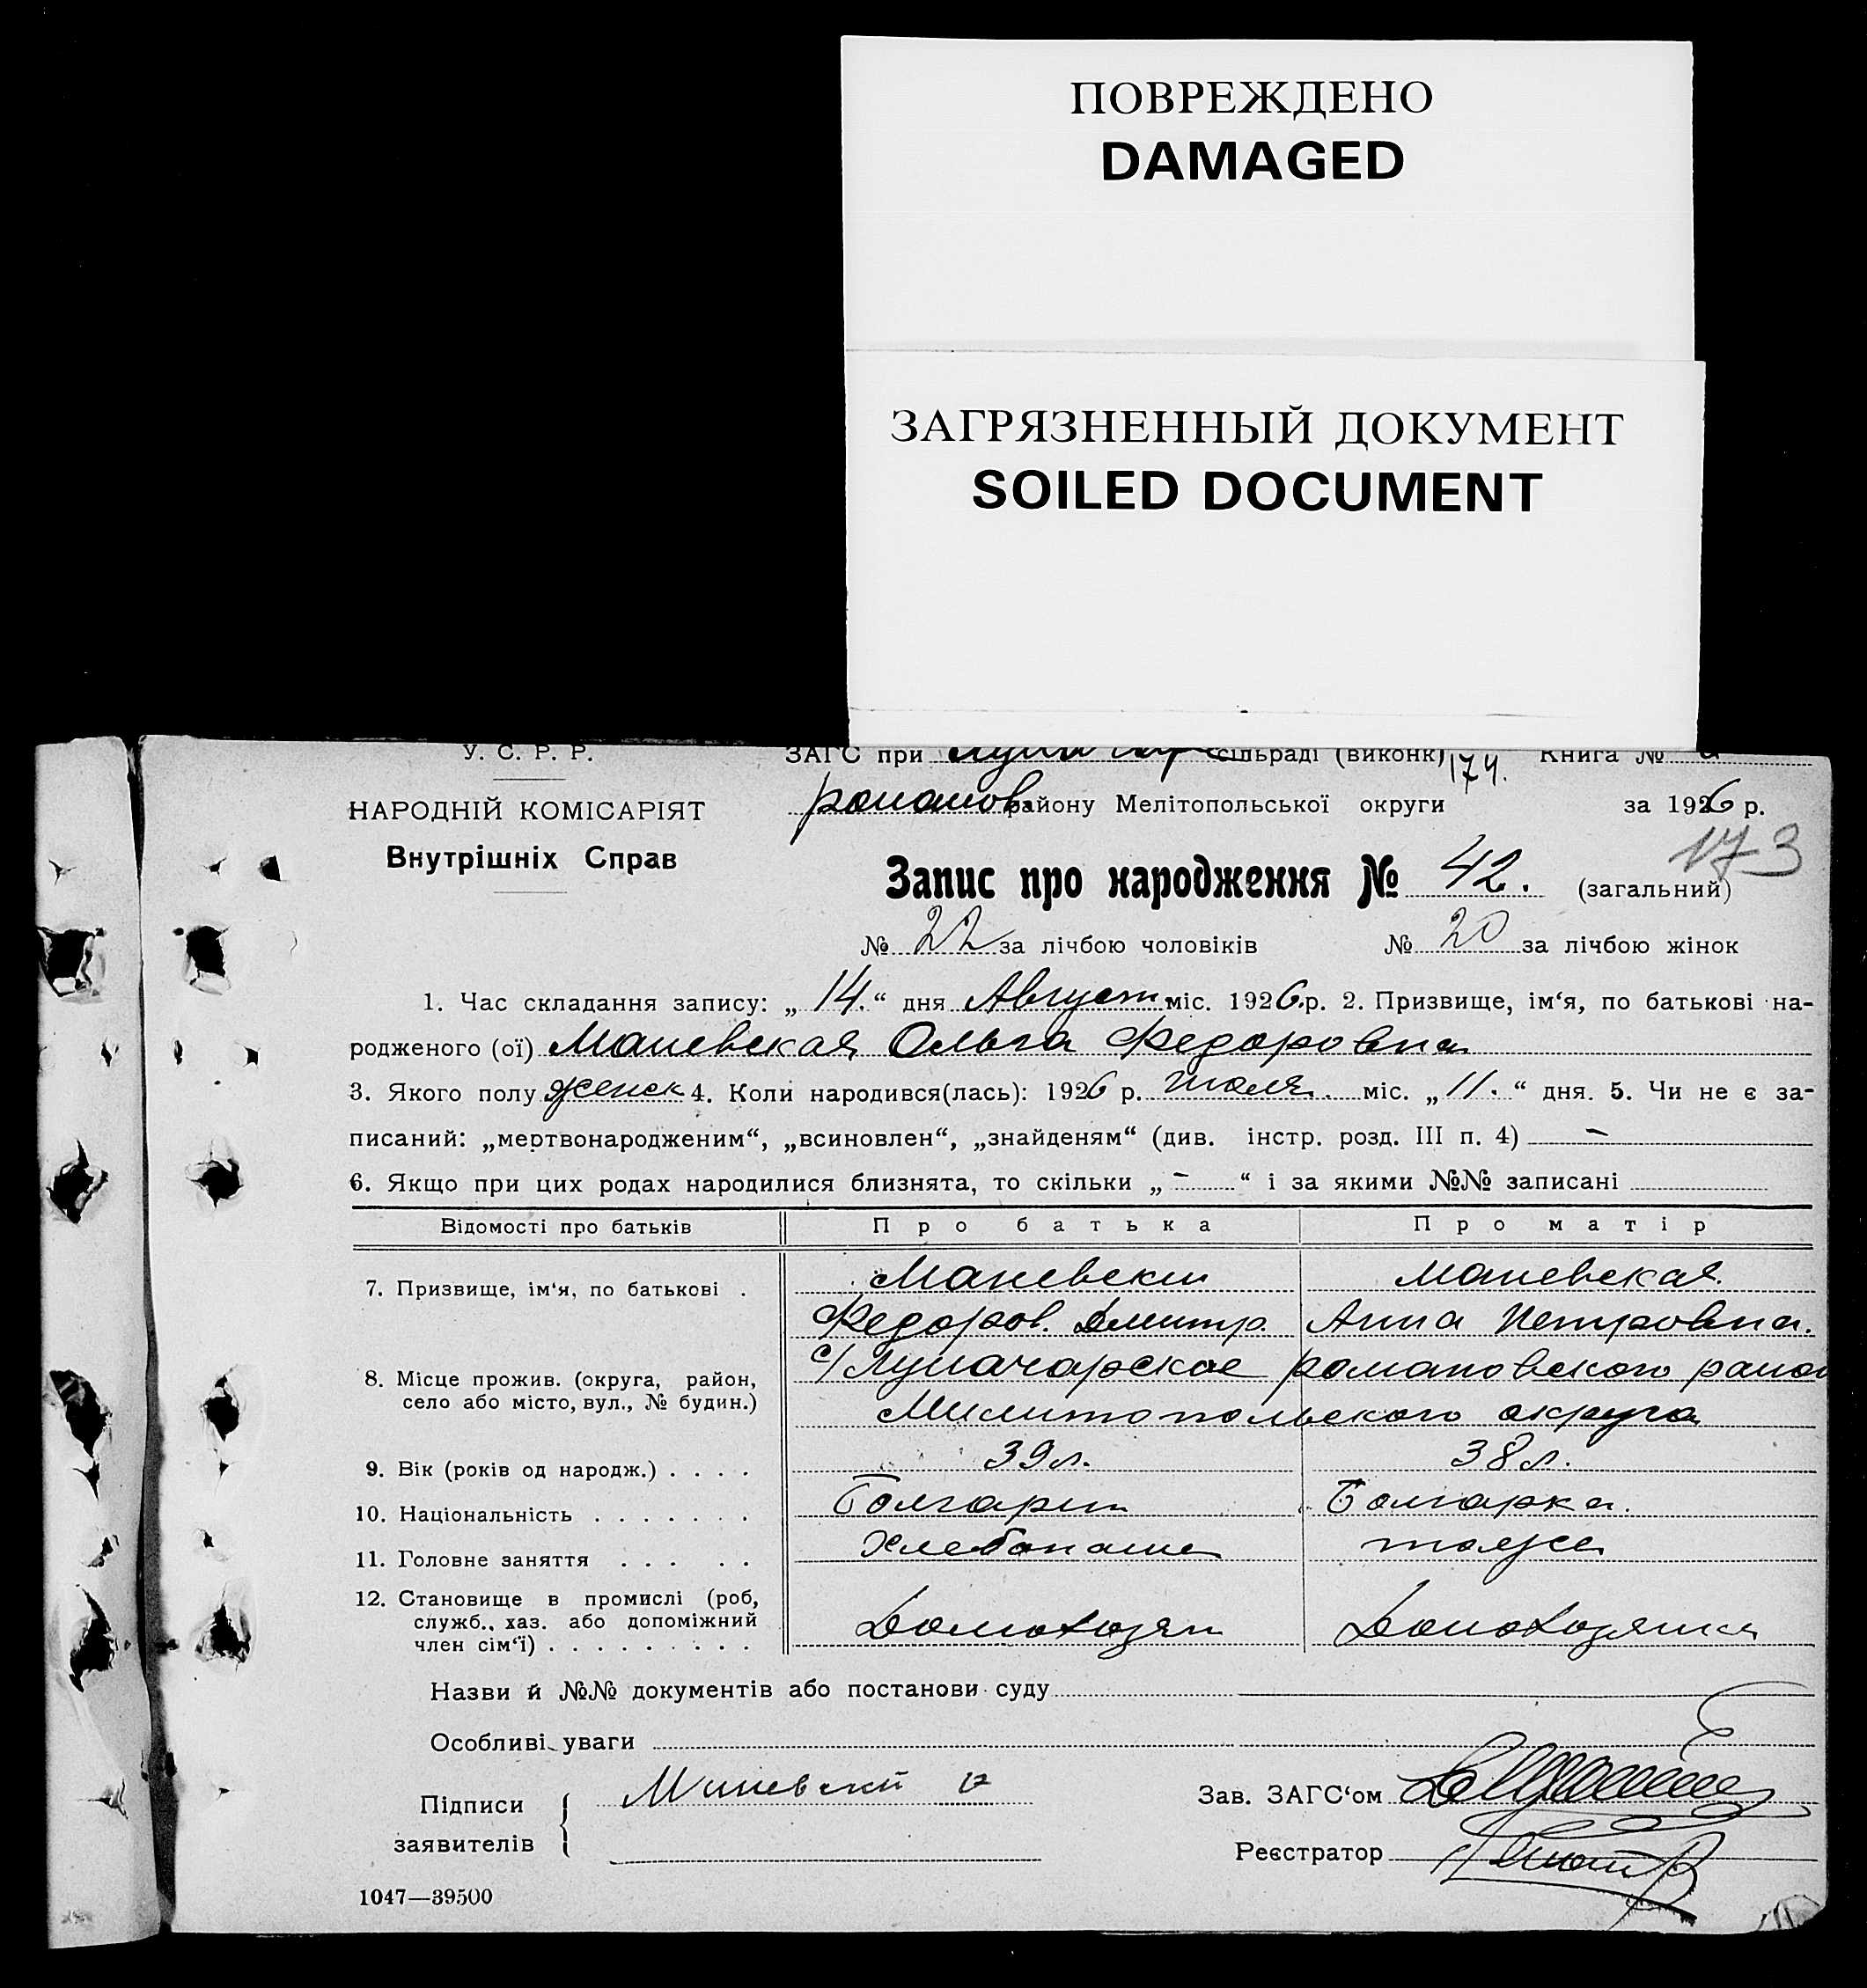 ПОВРЕЖДЕНО
DAMAGED
ЗАГРЯЗНЕННЫЙ ДОКУМЕНТ
SOILED DOCUMENT
У. С. Р. Р. ЗАГС при сільраді (виконк) 174. Книга №
НАРОДНІЙ КОМІСАРІЯТ романов. району Мелітопольської округи за 1926 р.
173
Внутрішніх Справ
Запис про народження № 42. (загальний)
№ 22 за лічбою чоловіків № 20 за лічбою жінок
1. Час складання запису: „ 14. “ дня Август міс. 1926.р. 2. Призвище, ім‘я, по батькові на-
родженого (ої) Маневская Ольга Федоровна
3. Якого полу женск 4. Коли народився(лась): 1926 р. июля. міс. „ 11. “ дня. 5. Чи не є за-
писаний: „мертвонародженим“, „всиновлен“, „знайденям“ (див. інстр. розд. III п. 4) –
6. Якщо при цих родах народилися близнята, то скільки „ – “ і за якими №№ записані
Відомості про батьків Про батька Про матір
7. Призвище, ім‘я, по батькові . Маневски Маневская.
Федоров. Дмитр. Анна Петровна.
8. Місце прожив. (округа, район, с/ Луначарское романовского район
село або місто, вул., № будин.) Милитопольского округа
9. Вік (років од народж.) . . . . 39 л. 38 л.
10. Національність . . . . . . . Болгарин Болгарка.
11. Головне заняття . . . . . Хлебопаше тоже
12. Становище в промислі (роб,
служб., хаз. або допоміжний
член сім‘ї) . . . . . . . . . Домохозяин Домохозяика
Назви й №№ документів або постанови суду
Особливі уваги
Підписи Маневский
заявителів
Зав. ЗАГС‘ом
Реєстратор
1047—39500